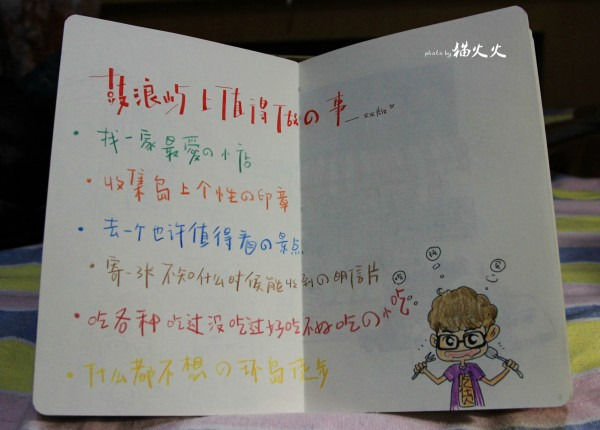 photo by 猫火火
鼓浪屿上值得做の事
• 找一家最爱の小店
• 收集岛上个性の印章
• 去一个也许值得看の景点
• 寄一张不知什么时候能收到の明信片
• 吃各种吃过没吃过好吃不好吃の小吃
• 什么都不想の环岛徒步
吃货